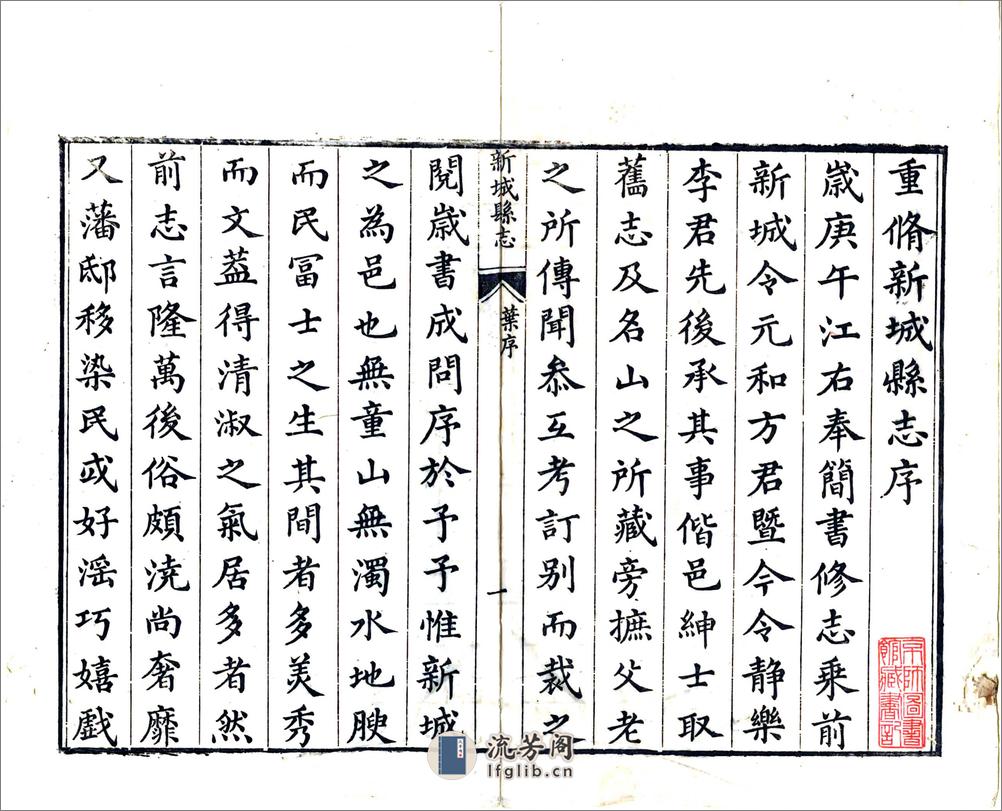 重脩新城縣志序
歲庚午江右奉簡書修志乘前
新城令元和方君暨今令静樂
李君先後承其事偕邑紳士取
舊志及名山之所藏旁摭父老
之所傳聞叅互考訂别而裁之
新城縣志
葉序
一
閱歲書成問序於予予惟新城
之為邑也無童山無濁水地腴
而民冨士之生其間者多美秀
而文葢得清淑之氣居多者然
前志言隆萬後俗頗澆尚奢靡
又藩邸移染民或好滛巧嬉戲
京師圖書
館藏書記
流芳阁
lfglib.cn